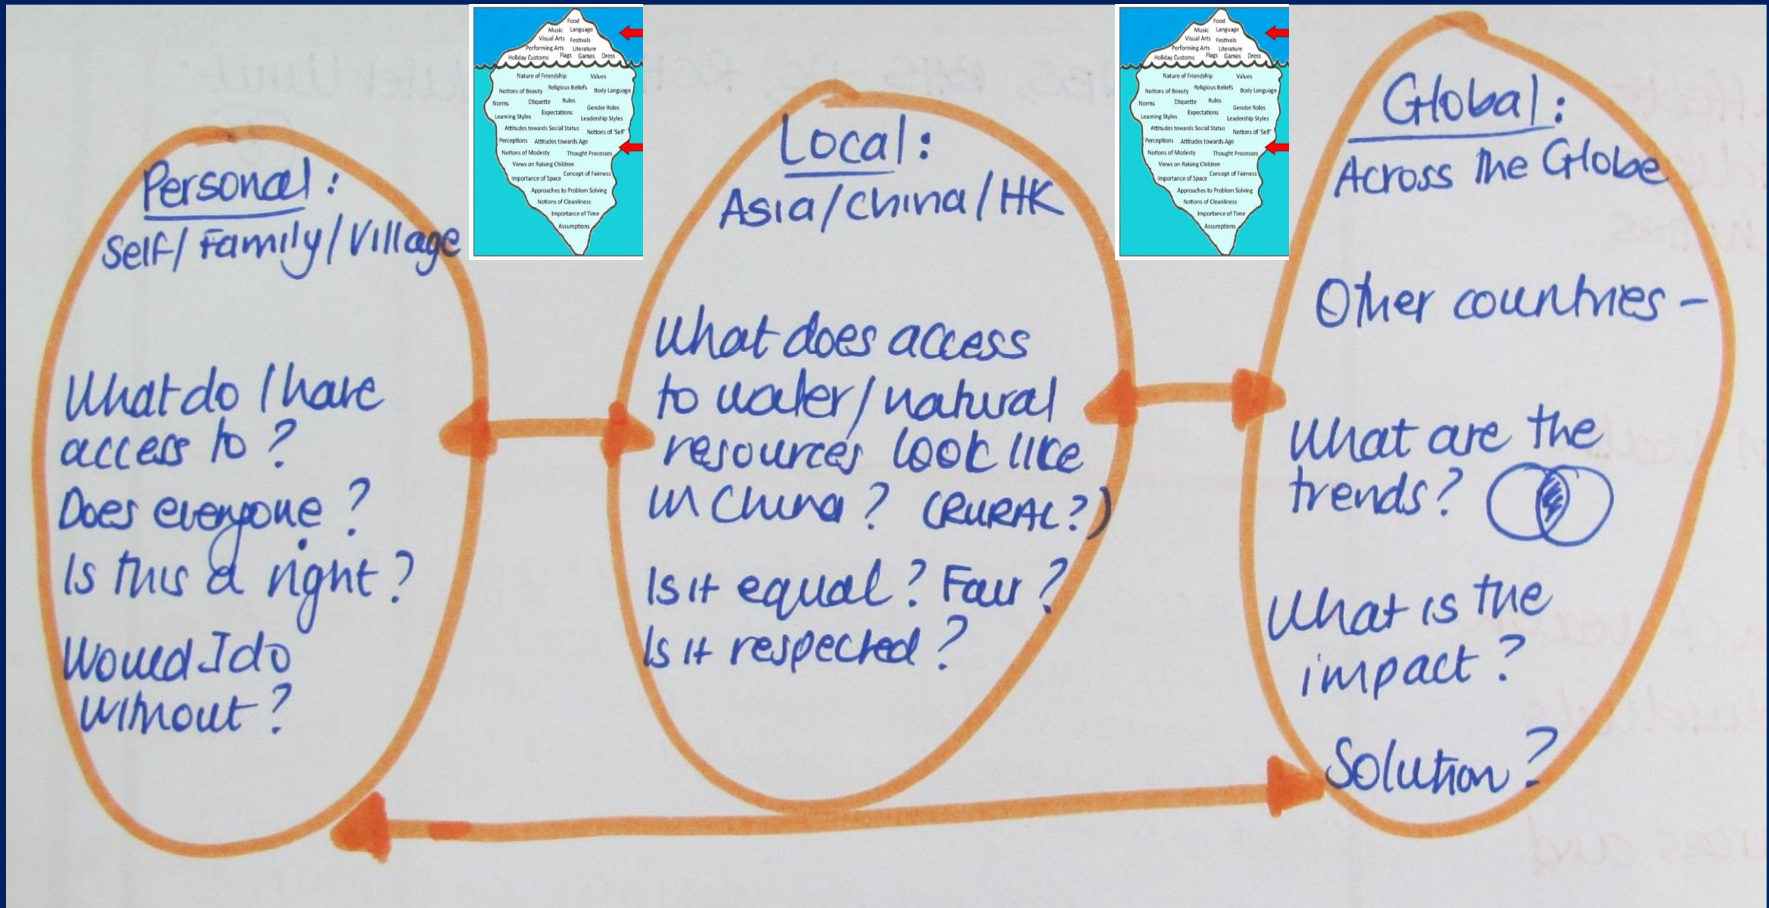 Personal:
Self/Family/Village
What do I have
access to?
Does everyone?
Is this a right?
Would I do
without?
Food
Music Language
Visual Arts Festivals
Performing Arts Literature
Holiday Customs Flags Games Dress
Nature of Friendship Values
Notions of Beauty Religious Beliefs Body Language
Norms Etiquette Rules Gender Roles
Learning Styles Expectations Leadership Styles
Attitudes towards Social Status Notions of 'Self'
Perceptions Attitudes towards Age
Notions of Modesty Thought Processes
Views on Raising Children
Importance of Space Concept of Fairness
Approaches to Problem Solving
Notions of Cleanliness
Importance of Time
Assumptions
Local:
Asia/China/HK
What does access
to water/natural
resources look like
in China? (RURAL?)
Is it equal? Fair?
Is it respected?
Food
Music Language
Visual Arts Festivals
Performing Arts Literature
Holiday Customs Flags Games Dress
Nature of Friendship Values
Notions of Beauty Religious Beliefs Body Language
Norms Etiquette Rules Gender Roles
Learning Styles Expectations Leadership Styles
Attitudes towards Social Status Notions of 'Self'
Perceptions Attitudes towards Age
Notions of Modesty Thought Processes
Views on Raising Children
Importance of Space Concept of Fairness
Approaches to Problem Solving
Notions of Cleanliness
Importance of Time
Assumptions
Global:
Across the Globe
Other countries –
What are the
trends?
What is the
impact?
Solution?